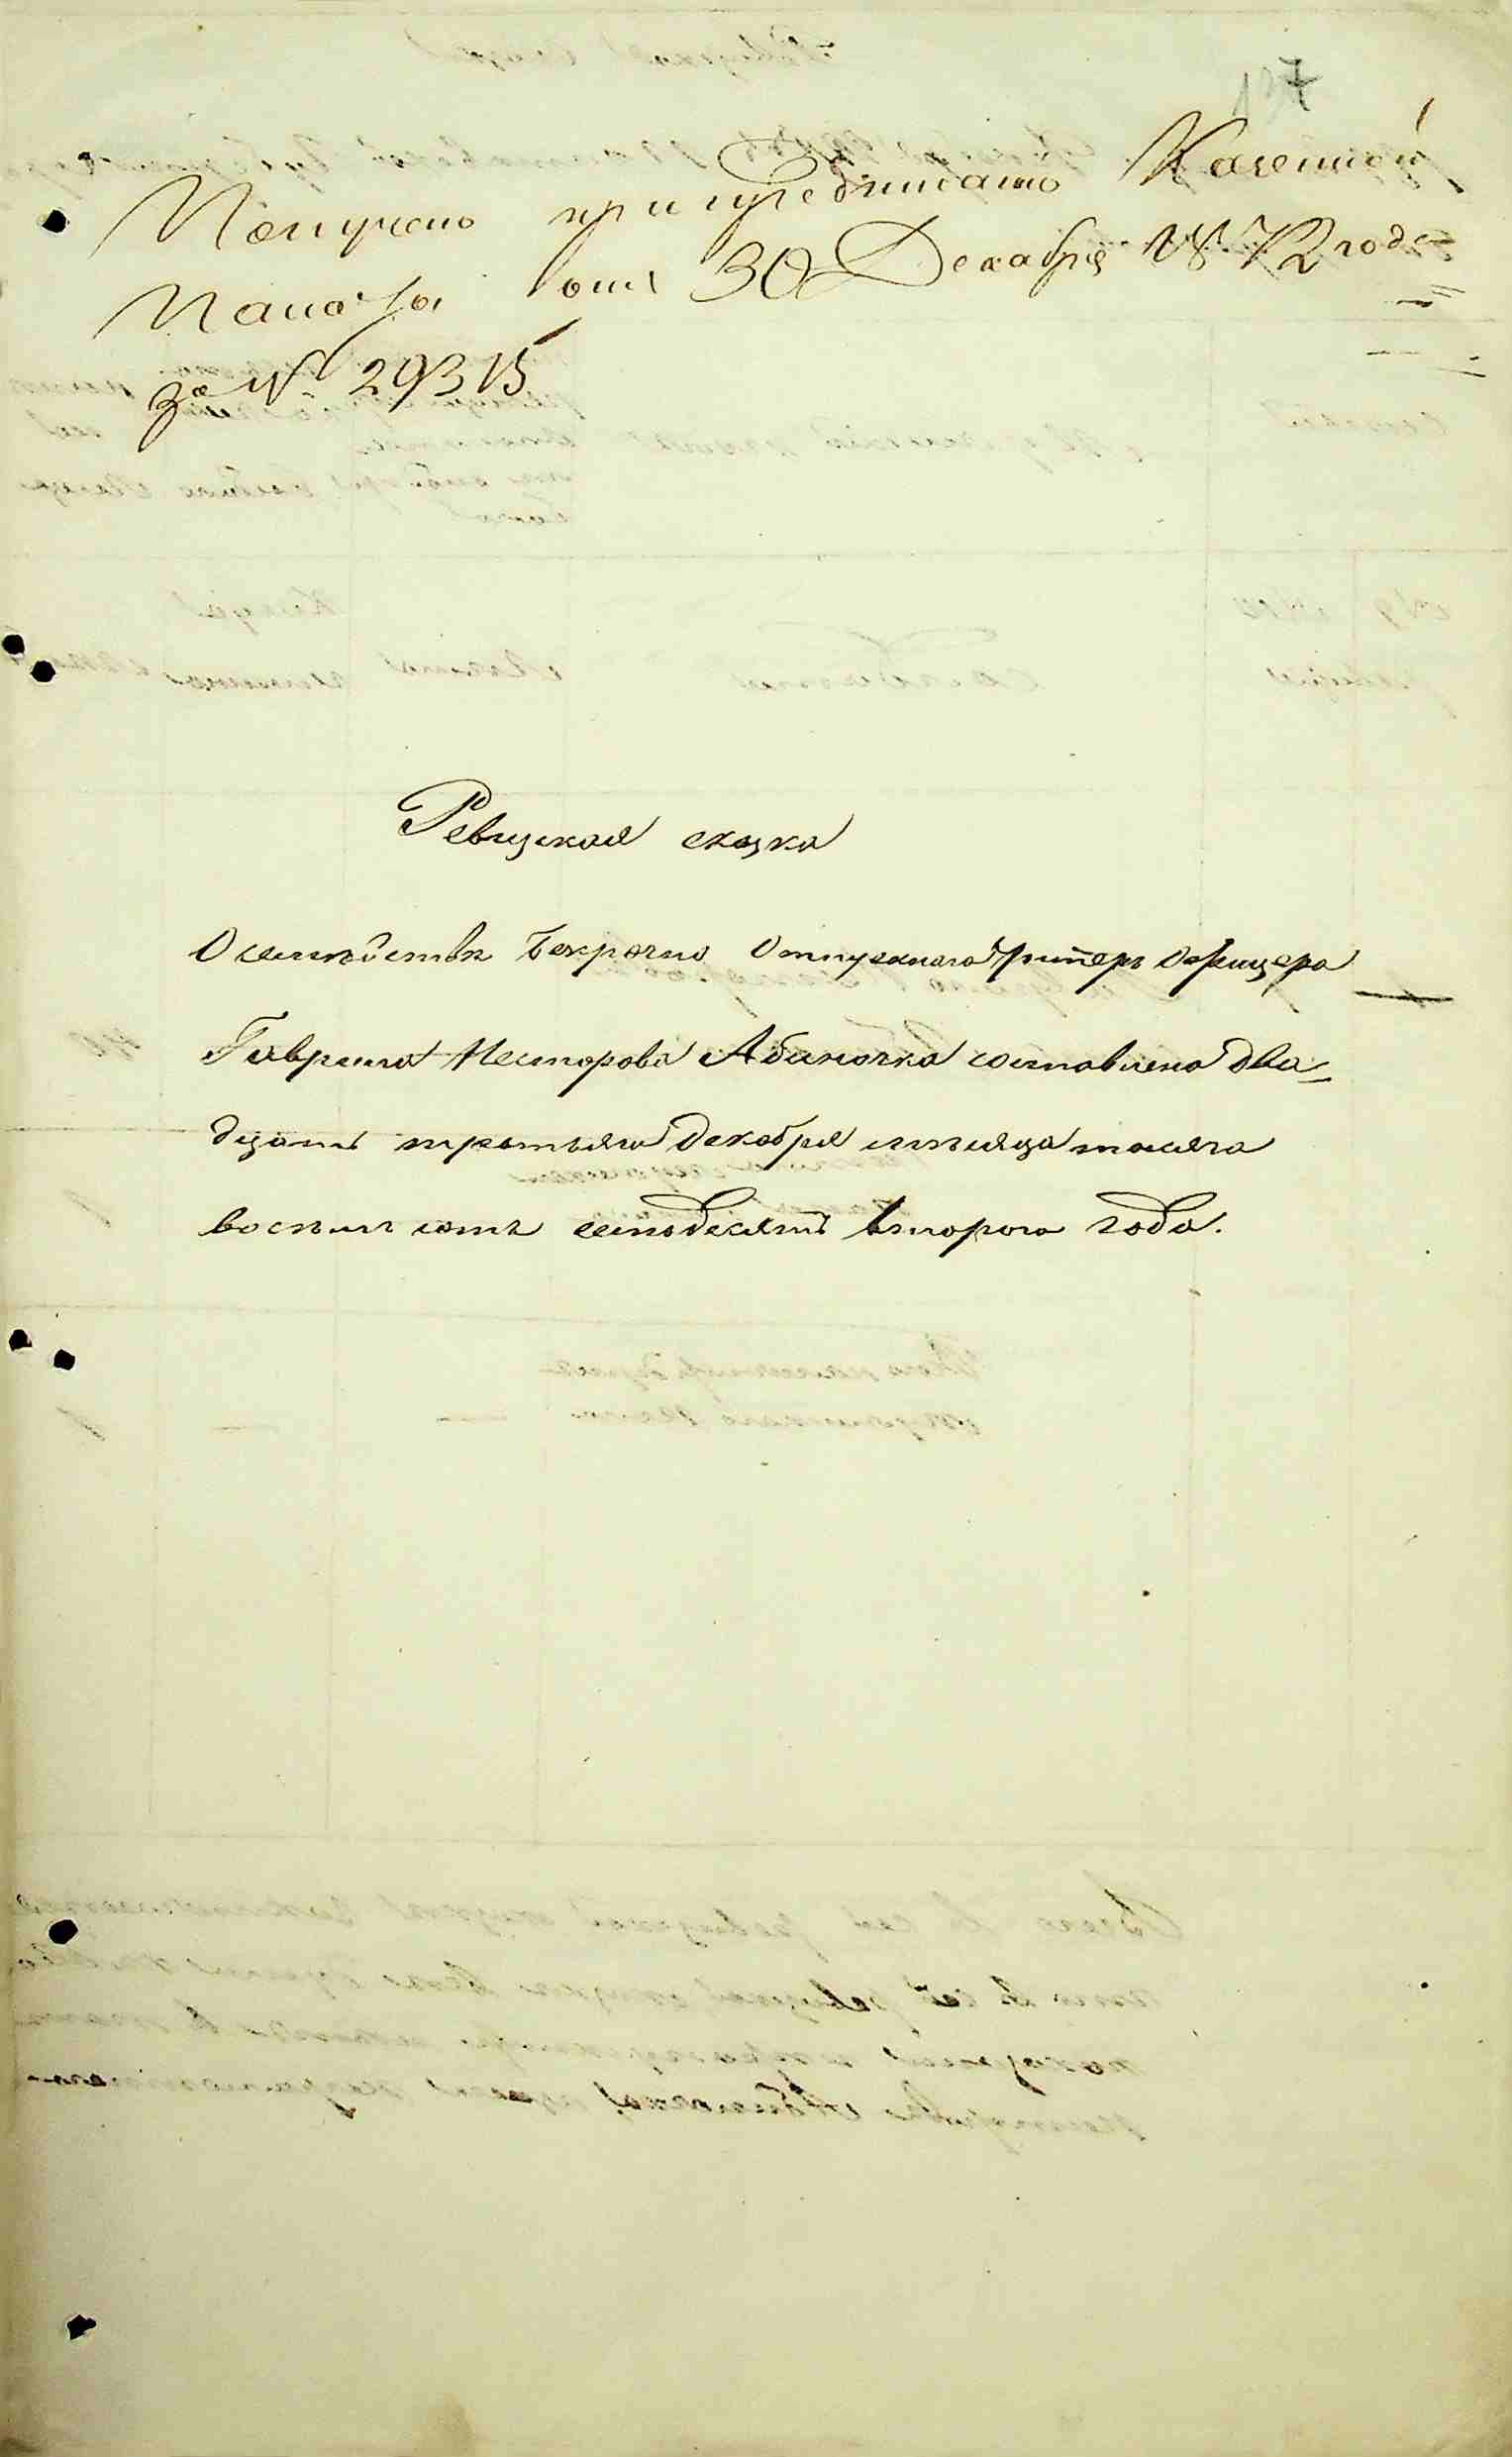 7
Получено при предписанiи Казенной
Палаты отъ 30 Декабря 1872 года
за № 29315
Ревизская сказка
О семѣйствѣ безсрочно Отпускнаго Унтеръ Офицера
Гаврила Несторова Абиночка составлена два-
дцать третьяго Декабря мѣсяца тысяча
восѣмь сотъ семьдесятъ втораго года.